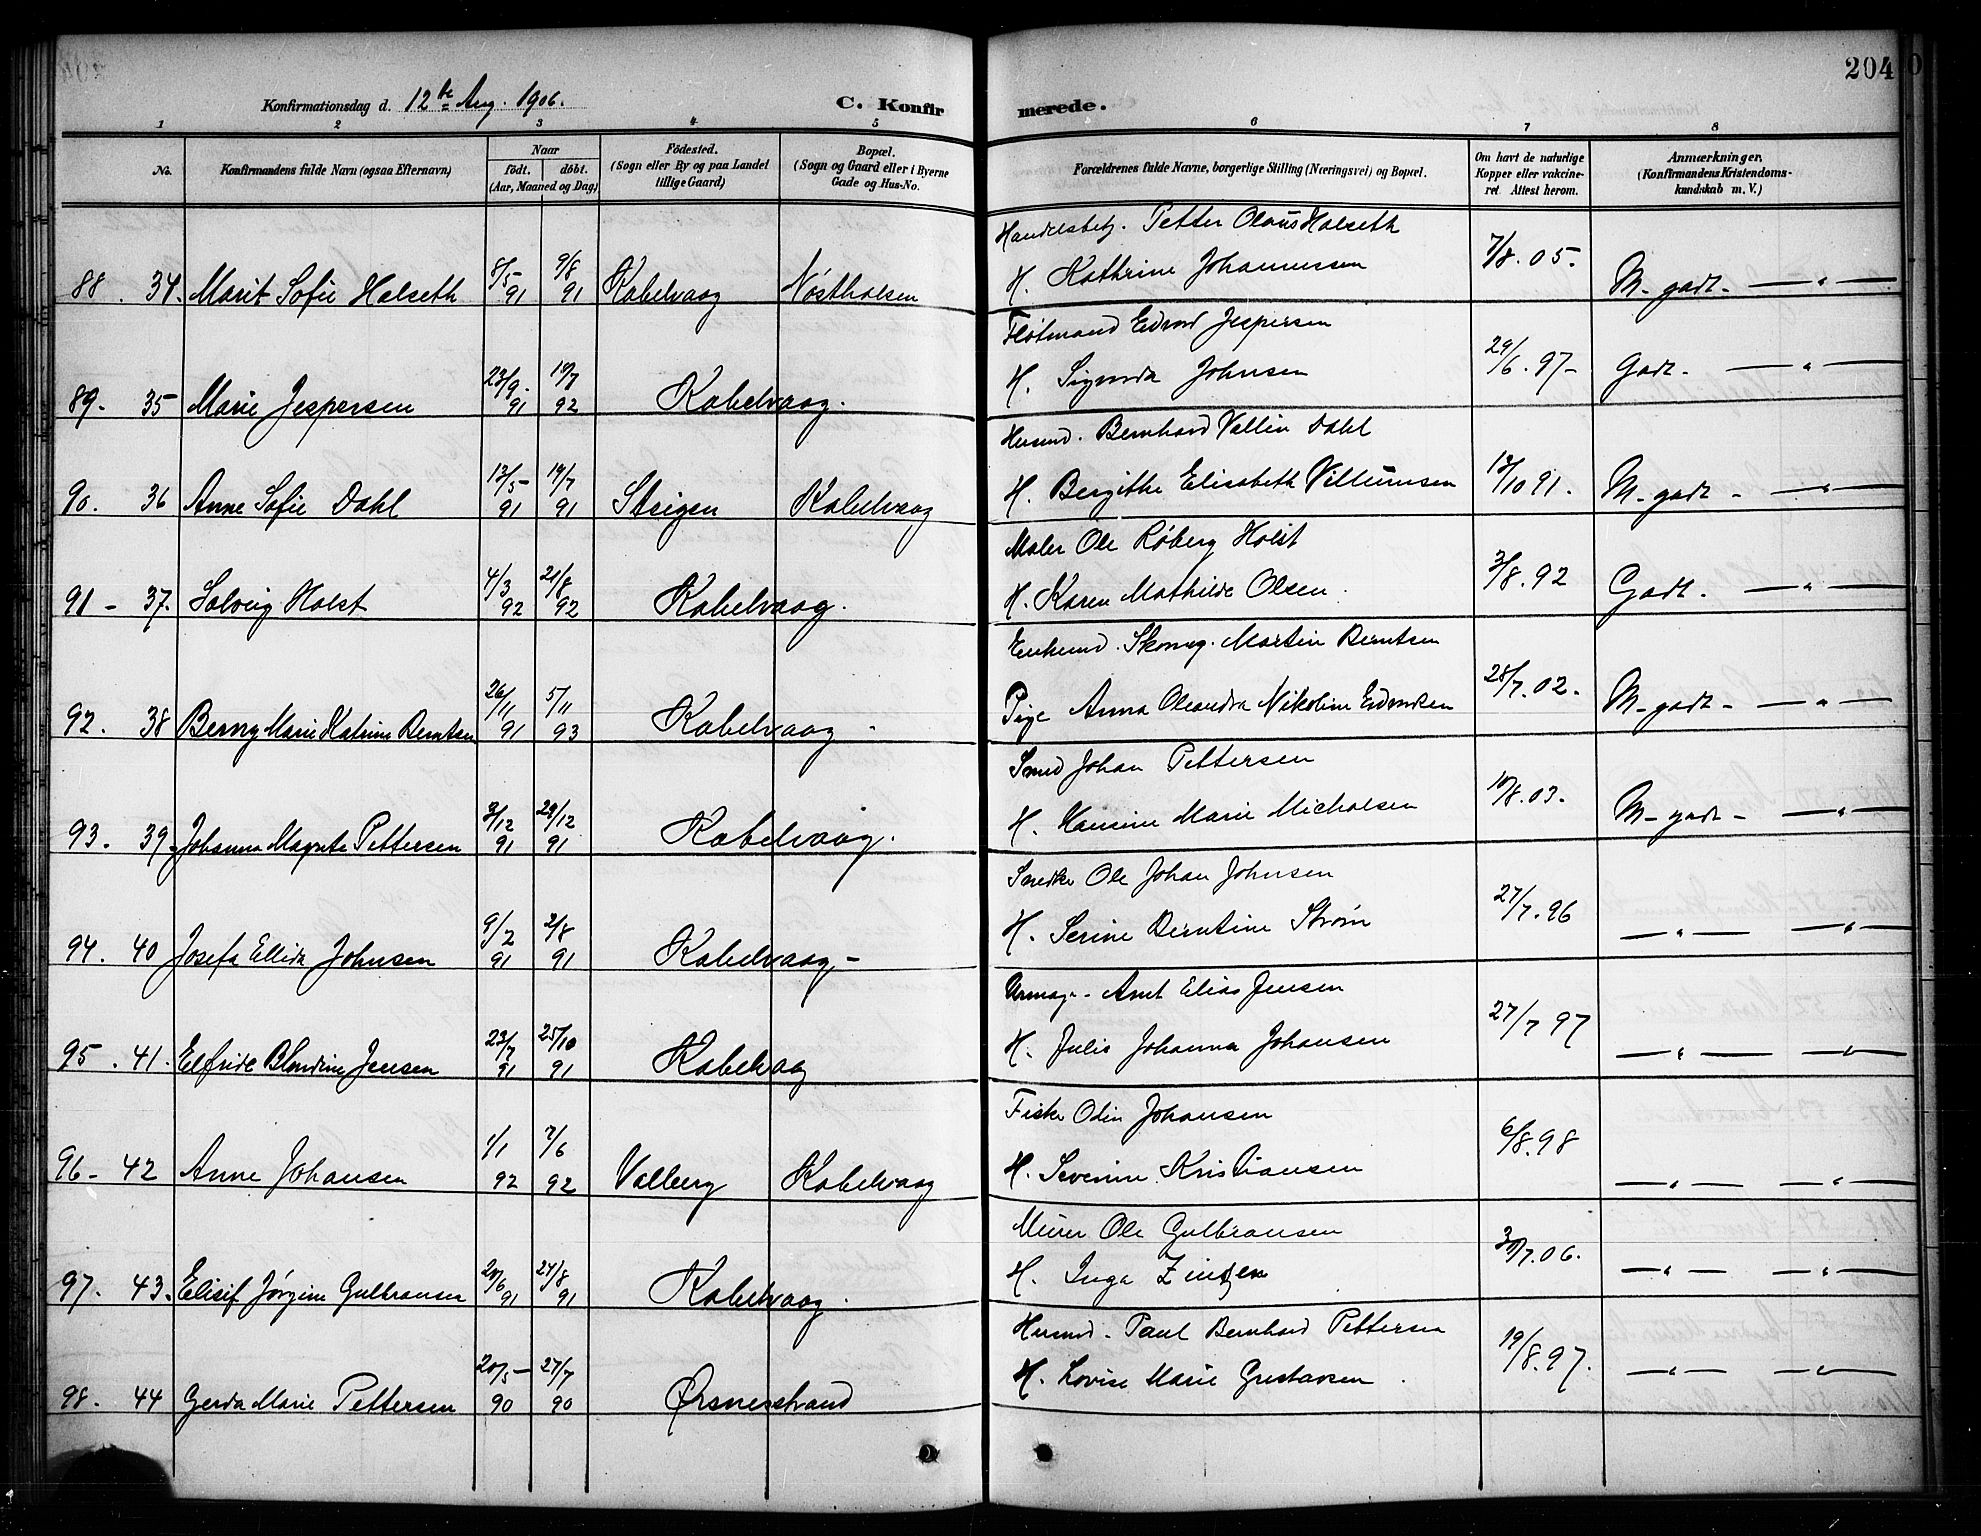 204
Konfirmationsdag d. 12te Aug. 1906.
C. Konfirmerede.
1 2 3 4 5 6 7 8
No.
Konfirmandens fulde Navn (ogsaa Efternavn)
Naar
födt. döbt.
(Aar, Maaned og Dag)
Födested.
(Sogn eller By og paa Landet
tillige Gaard)
Bopæl.
(Sogn og Gaard eller i Byerne
Gade og Hus-No.
Forældrenes fulde Navne, borgerlige Stilling (Næringsvei) og Bopæl.
Om havt de naturlige
Kopper eller vakcine-
ret Attest herom.
Anmærkninger.
(Konfirmandens Kristendoms-
kundskab m. V.)
Handelsbetj. Petter Olaus Halseth
88. 34. Marit Sofie Halseth 8/5 91 9/8 91 Kabelvaag Nøstholsen H. Kathrine Johannessen 7/8. 05. M-godt - — „ —
Flötmand Edvard Jespersen
89. 35 Marie Jespersen 23/9. 91 10/7 92 Kabelvaag. H. Sigvarda Johnsen 29/6. 97- Godt. - — „ —
Husmd. Bernhard Vallin Dahl
90. 36 Anne Sofie Dahl 13/5 91 19/7 91 Steigen Kabelvaag H. Bergithe Elisabeth Villumsen 18/10 91. M-godt - — „ —
Maler Ole Röberg Holst
91 - 37. Solveig Holst 4/3 92 21/8 92 Kabelvaag. H. Karen Mathilde Olsen. 3/8. 92 Godt. — „ —
Enkemd. Skomag. Martin Berntsen
92. 38 Berny Marie Katrine Berntsen 26/11 91 5/11 93 Kabelvaag - Pige Anna Oleandra Nikoline Edvardsen 28/7. 02. M-godt - — „ —
Smed Johan Pettersen
93. 39. Johanna Magnete Pettersen 3/12 91 29/12 91 Kabelvaag. H. Hansine Marie Michalsen 10/8. 03. M-godt - — „ —
Snedke Ole Johan Johnsen
94. 40 Josefa Ellida Johnsen 9/2 91 2/8 91 Kabelvaag - H. Serine Berntine Strøm 27/7. 96 — „ — — „ —
Urmag. - Arnt Elias Jensen
95. 41. Elfride Blondine Jensen 23/7 91 25/10 91 Kabelvaag H. Julie Johanna Johansen 27/7 97 — „ — — „ —
Fiske Odin Johansen
96 - 42 Anne Johansen 1/1 92 7/6 92 Valberg Kabelvaag H. Severine Kristiansen 6/8. 98 — „ — — „ —
Murer Ole Gulbransen
97. 43. Elisif Jørgine Gulbransen 29/6 91 24/8 91 Kabelvaag. H. Inga Zintzen 30/7. 06. — „ — — „ —
Husmd. Paul Bernhard Pettersen
98. 44 Gerda Marie Pettersen 20/5 90 27/7 90 Ørsnesstrand H. Lovise Marie Gustavsen. 19/8. 97. — „ — — „ —